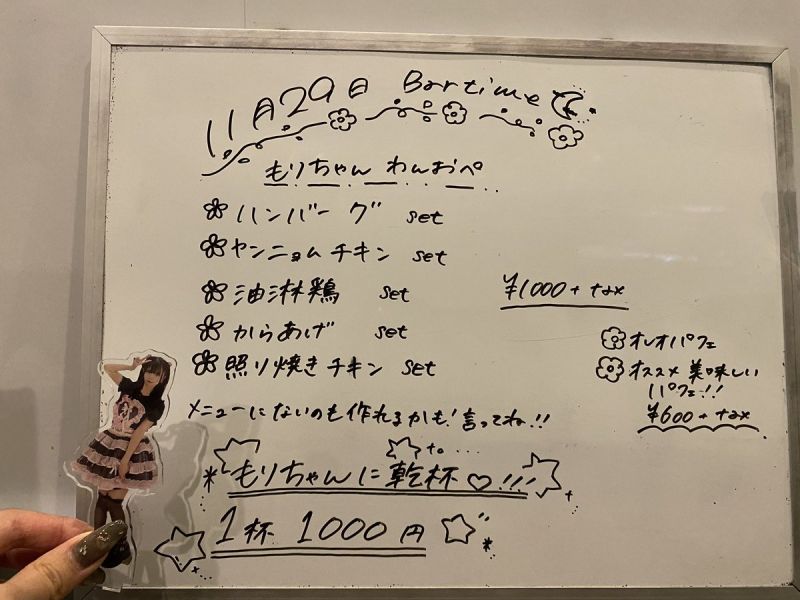 11月29日 Bartime
もりちゃん わんおぺ
ハンバーグ set
ヤンニョムチキン set
油淋鶏 set
¥1000+tax
からあげ set
照り焼きチキン set
オレオパフェ
オススメ 美味しい
パフェ!!
¥600+tax
メニューにないのも作れるかも!言ってね!!
to...
もりちゃんに乾杯♡!!!
1杯 1000円